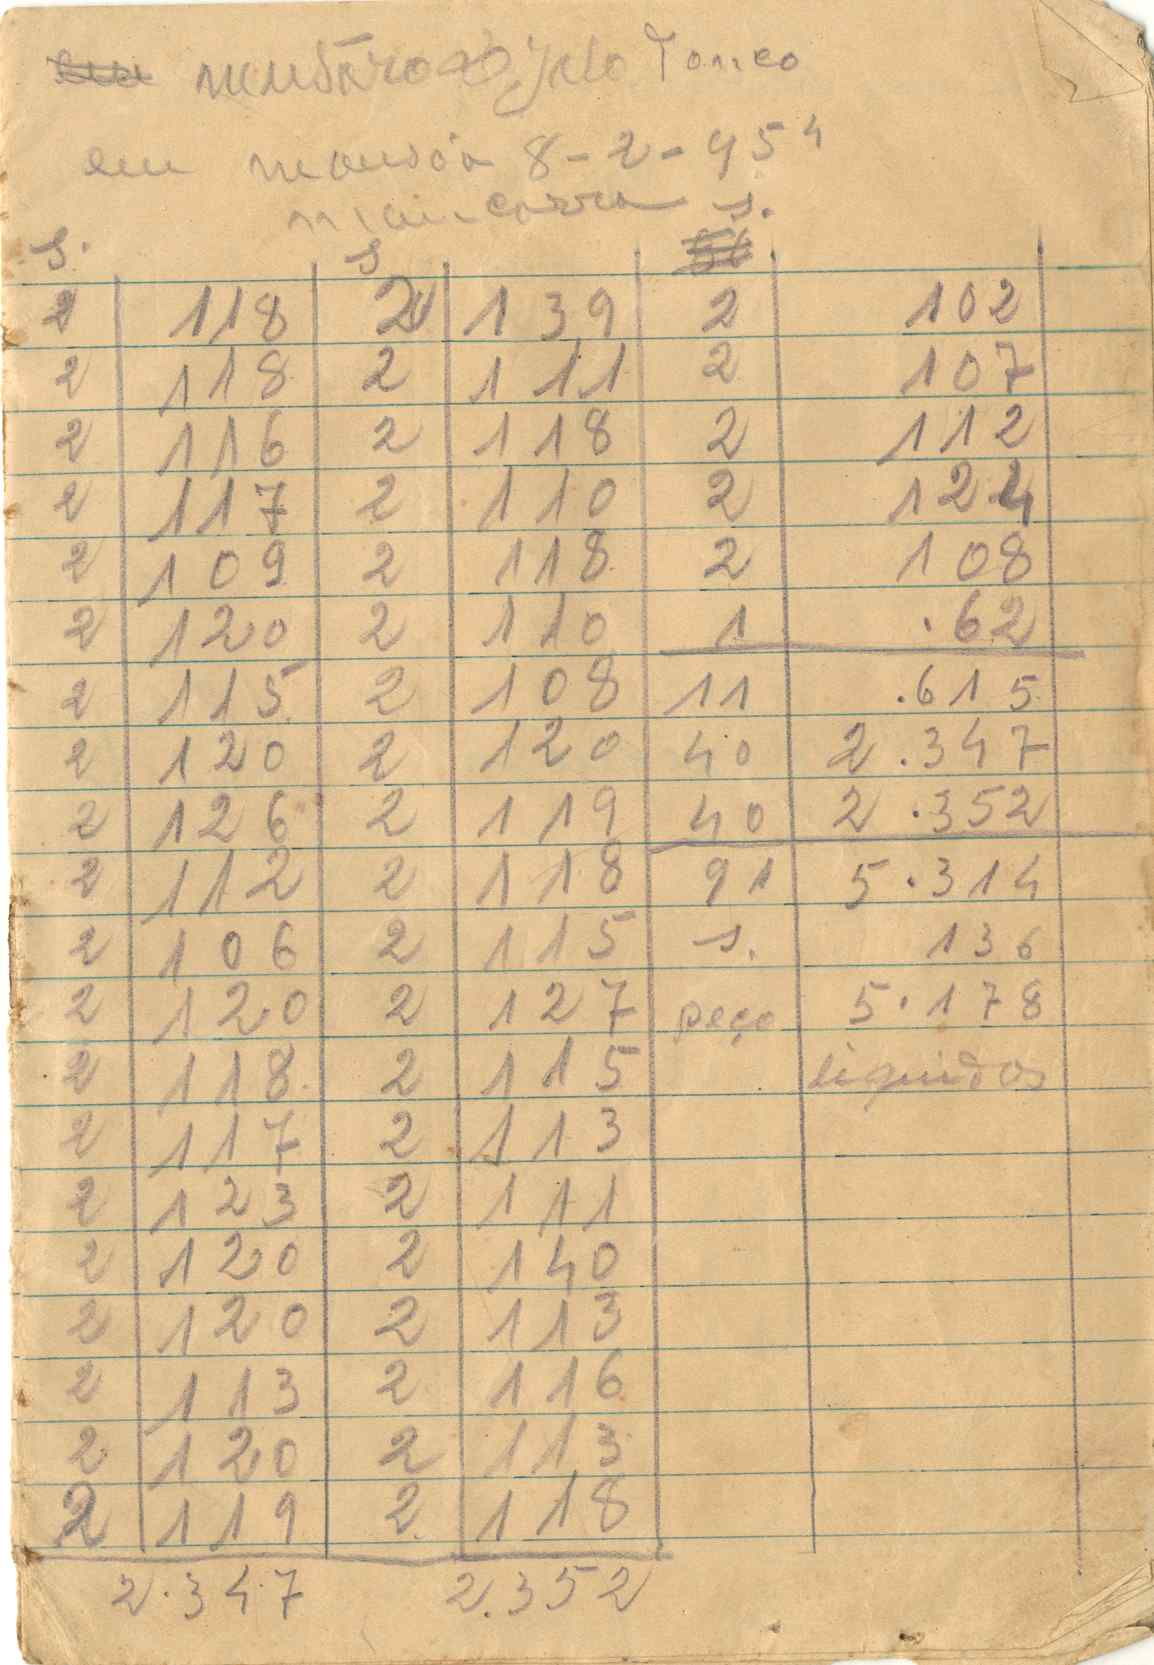 em
em 8-2-954
s.
s. s
2 118 2 139 2 102
2 118 2 111 2 107
2 116 2 118 2 112
2 117 2 110 2 124
2 109 2 118 2 108
2 120 2 110 1 .62
2 115 2 108 11 .615
2 120 2 120 40 2.347
2 126 2 119 40 2.352
2 112 2 118 91 5.314
2 106 2 115 s. 136
2 120 2 127 peço 5.178
2 118 2 115 liquidos
2 117 2 113
2 123 2 111
2 120 2 140
2 120 2 113
2 113 2 116
2 120 2 113
2 119 2 118
2.347 2.352